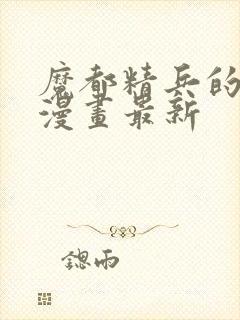 魔都精兵的
漫畫最新
鍶雨